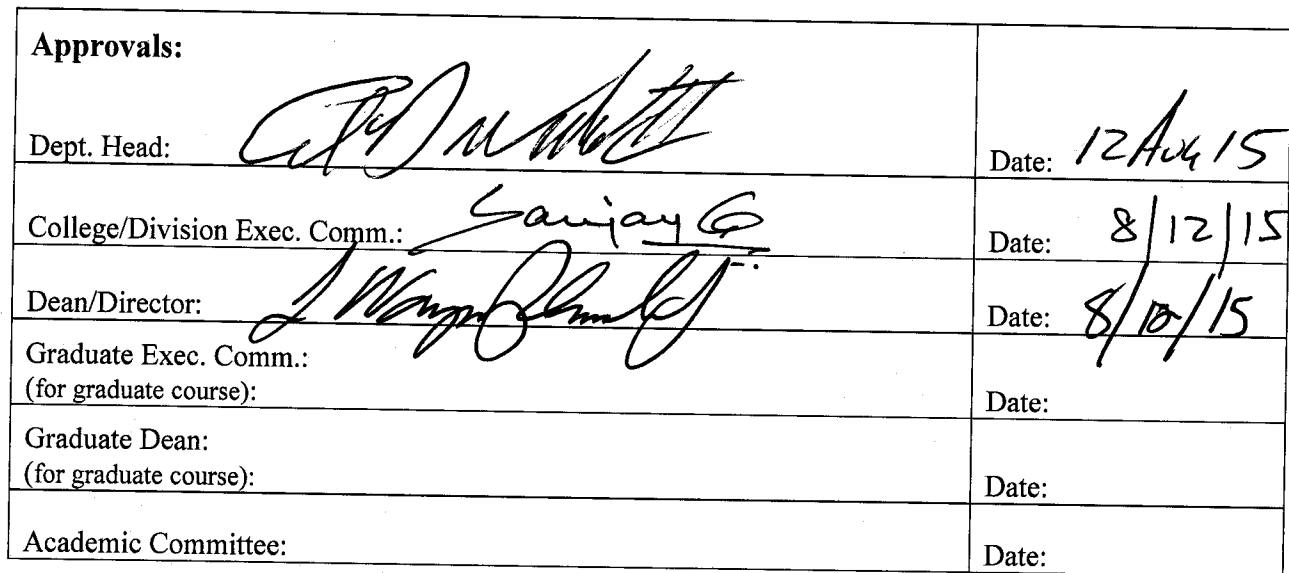 Approvals:
Dept. Head: Date: 12 Aug 15
College/Division Exec. Comm.: Sanjay G Date: 8/12/15
Dean/Director: Date: 8/12/15
Graduate Exec. Comm.:
(for graduate course): Date:
Graduate Dean:
(for graduate course): Date:
Academic Committee: Date: